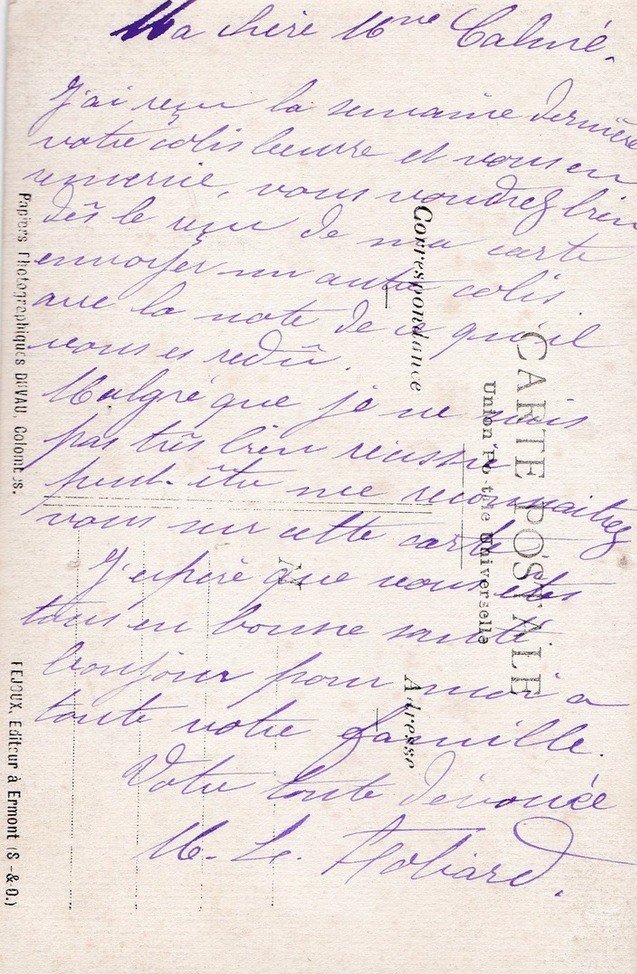 Ma chère Mme Calmé.
J'ai reçu la semaine dernière
votre colis beurre et vous en
remercie, vous voudrez bien
dès le reçu de ma carte
envoyer un autre colis
avec la note de ce qu'il
vous es redû.
Malgré que je ne suis
pas très bien réussie
peut-être me reconnaitrez
vous sur cette carte.
J'espère que vous êtes
tous en bonne santé.
bonjour pour moi a
toute votre famille.
Votre toute dévouée
M. Le
CARTE POSTALE
Union Postale Universelle
Correspondance
Adresse
M
Papiers Photographiques DUVAU, Colombes.
FEJOUX, Editeur à Ermont (S.-&-O.)